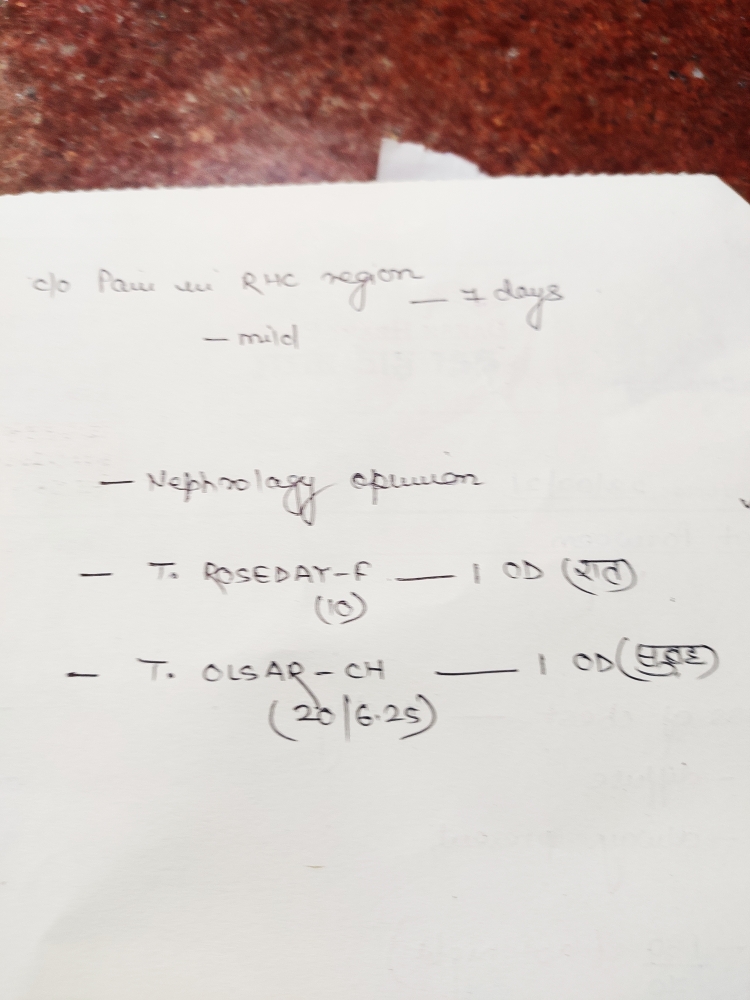 c/o Pain in RHC region — 7 days
— mild
— Nephrology opinion
— T. ROSEDAY-F — 1 OD (रात)
(10)
— T. OLSAR-CH — 1 OD (सुबह)
(20/6.25)